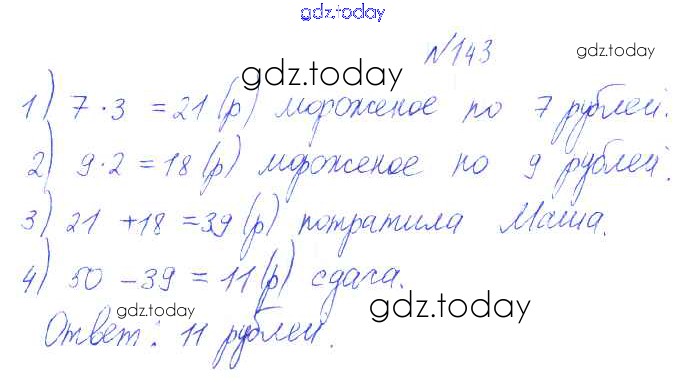 gdz.today
№143
gdz.today
gdz.today
1) 7·3 = 21 (р) мороженое по 7 рублей.
2) 9·2 = 18 (р) мороженое по 9 рублей.
3) 21 + 18 = 39 (р) потратила Маша.
4) 50 - 39 = 11 (р) сдача.
gdz.today
gdz.today
Ответ: 11 рублей.